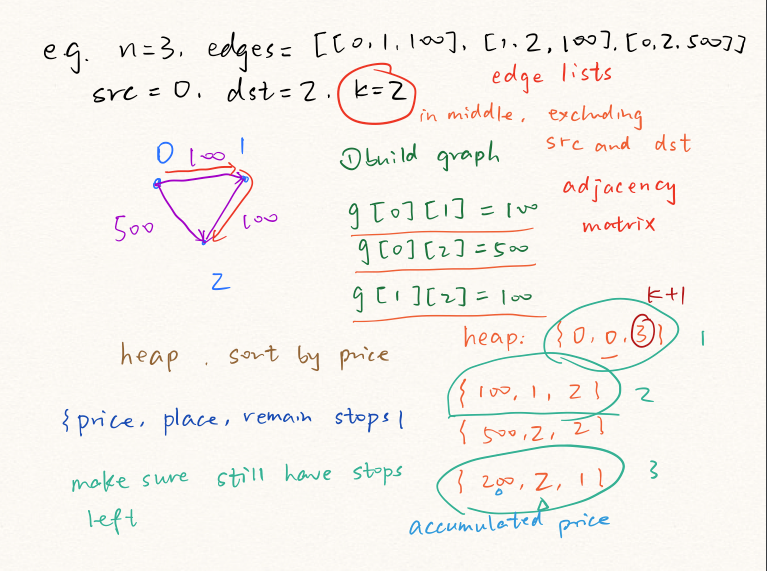 e.g. n=3, edges= [[0,1,100], [1,2,100], [0,2,500]]
src = 0, dst=2, k=2
edge lists
in middle, excluding
src and dst
① build graph
adjacency
matrix
0 100 1
500 100
2
g[0][1] = 100
g[0][2] = 500
g[1][2] = 100
k+1
heap: {0, 0, 3} 1
heap, sort by price
{100, 1, 2} 2
{price, place, remain stops}
{500, 2, 2}
make sure still have stops
left
{200, 2, 1} 3
accumulated price